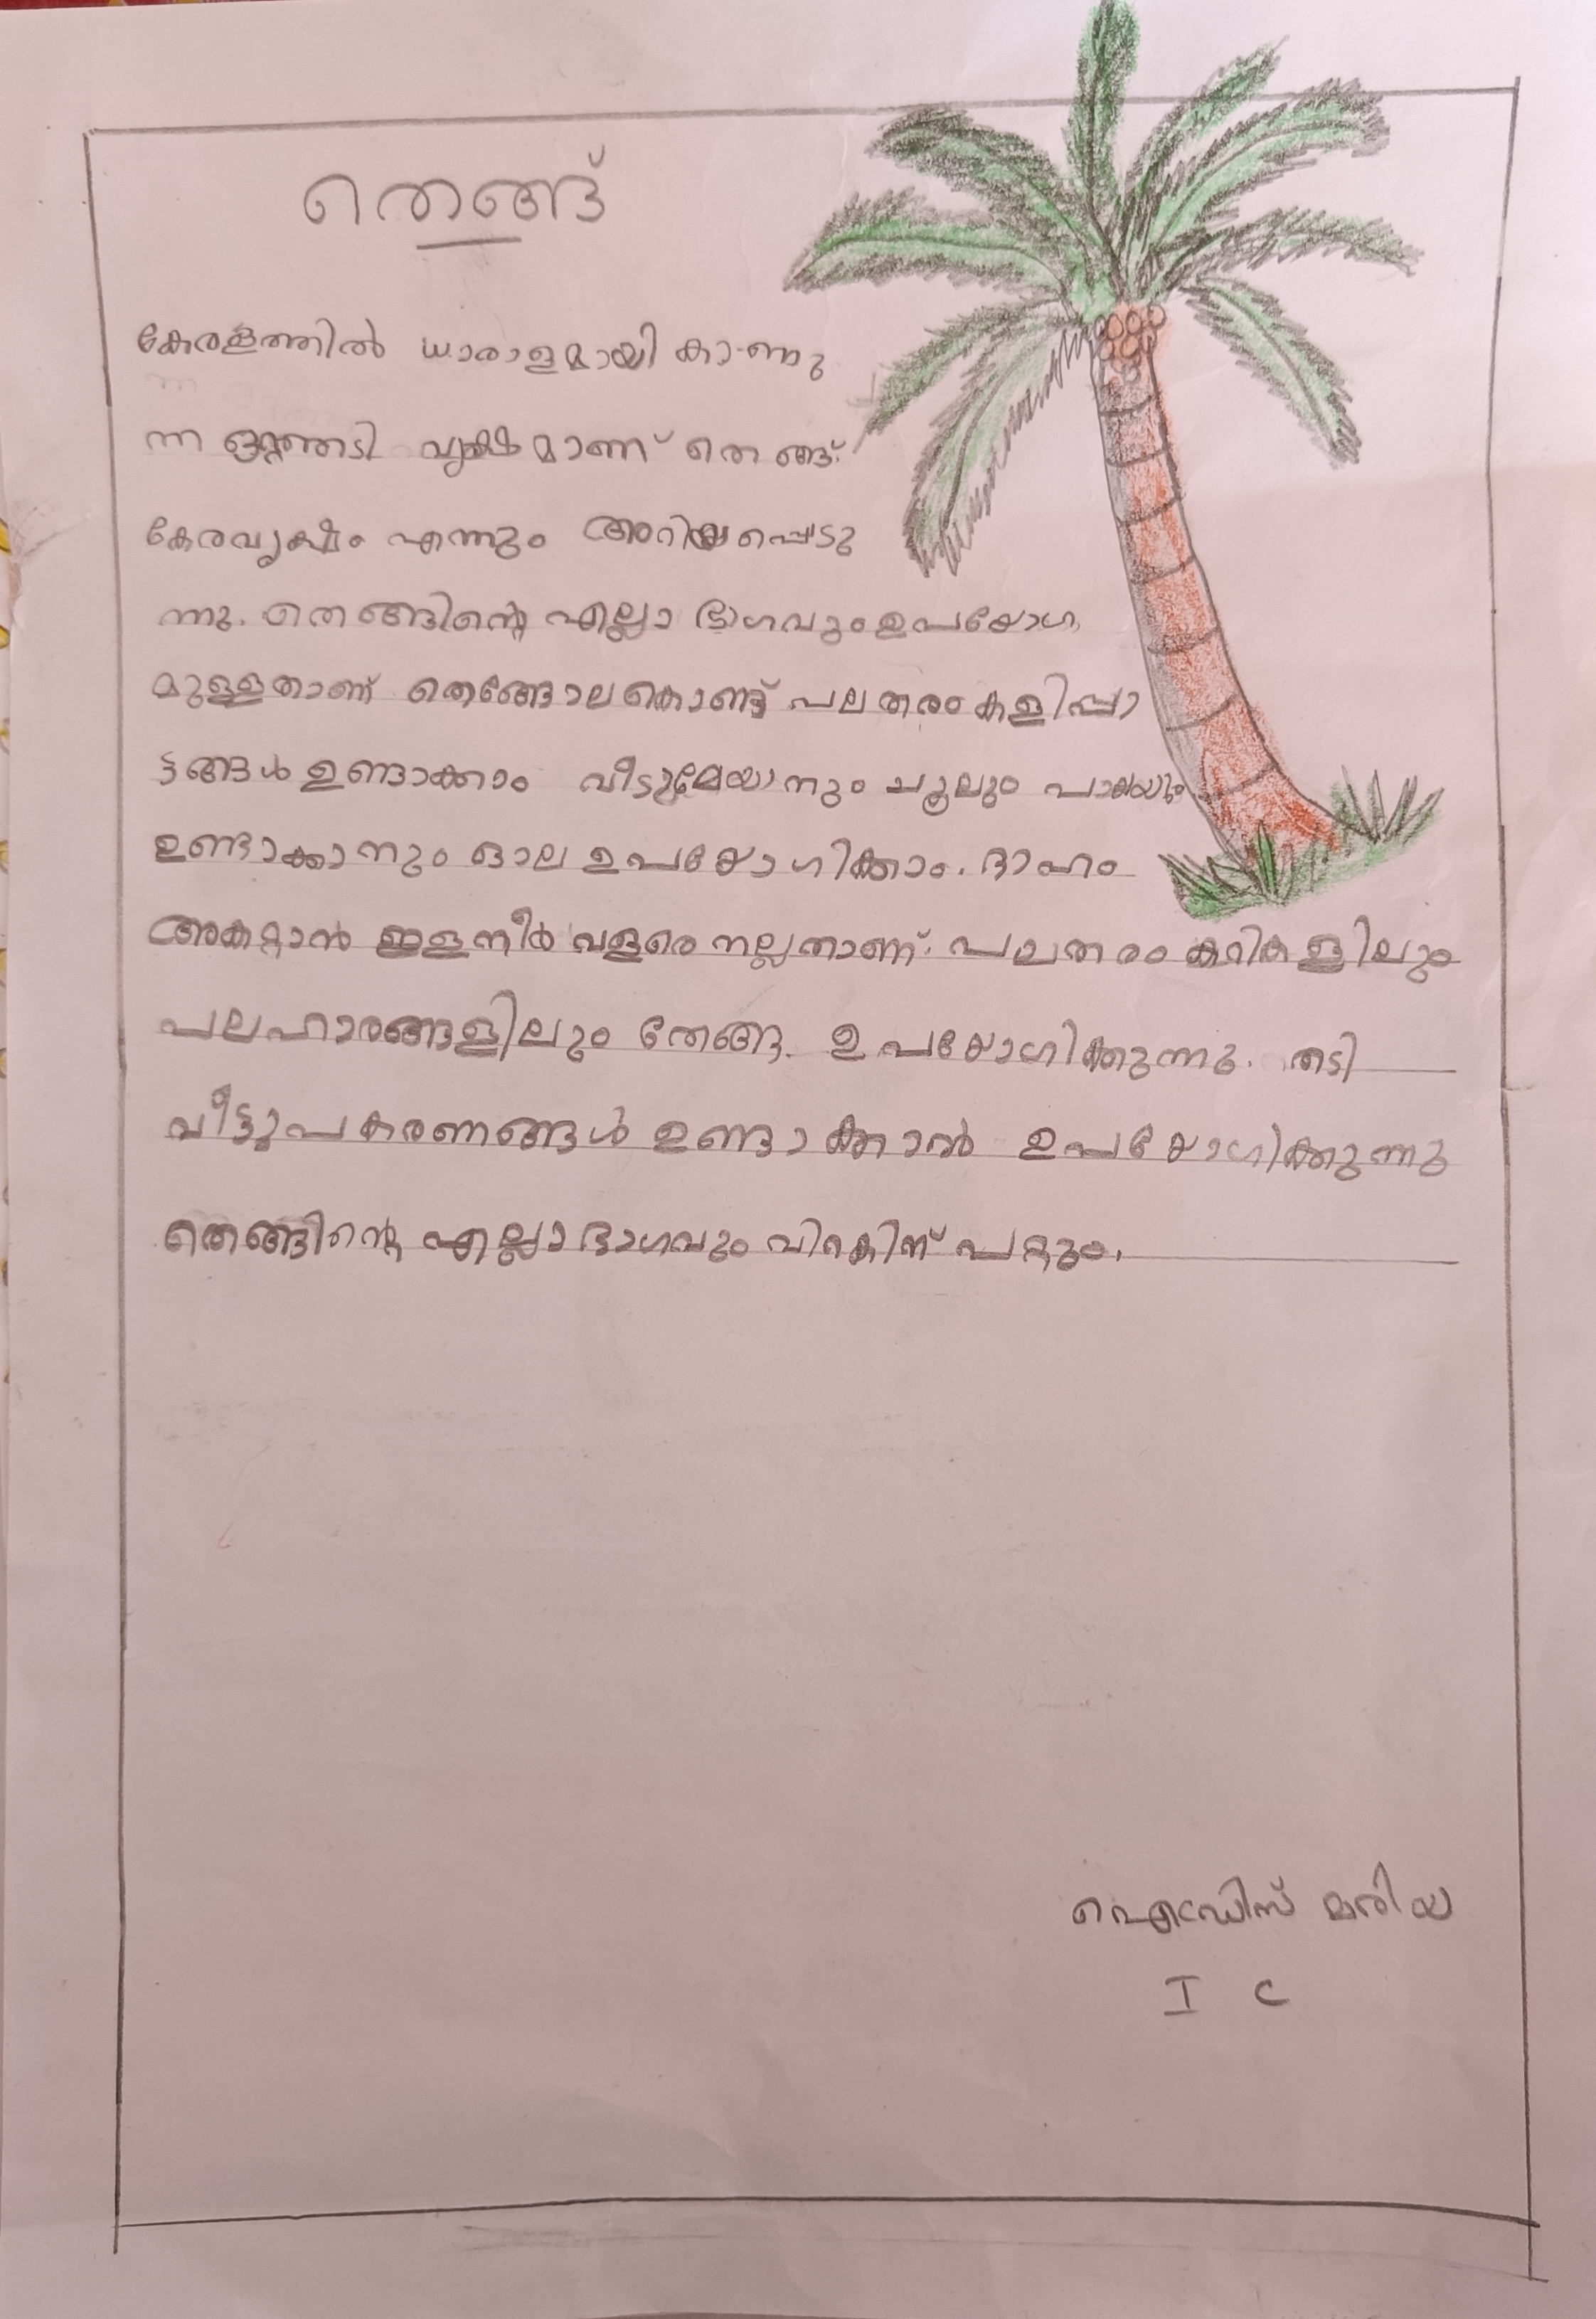 തെങ്ങ്
കേരളത്തിൽ ധാരാളമായി കാണു
ന്ന ഒറ്റത്തടി വൃക്ഷമാണ് തെങ്ങ്.
കേരവൃക്ഷം എന്നും അറിയപ്പെടു
ന്നു. തെങ്ങിന്റെ എല്ലാ ഭാഗവും ഉപയോഗ
മുള്ളതാണ് തെങ്ങോലകൊണ്ട് പലതരം കളിപ്പാ
ട്ടങ്ങൾ ഉണ്ടാക്കാം വീടുമേയാനും ചൂലും പായയും
ഉണ്ടാക്കാനും ഓല ഉപയോഗിക്കാം. ദാഹം
അകറ്റാൻ ഇളനീർ വളരെ നല്ലതാണ്. പലതരം കറികളിലും
പലഹാരങ്ങളിലും തേങ്ങ ഉപയോഗിക്കുന്നു. തടി
വീട്ടുപകരണങ്ങൾ ഉണ്ടാക്കാൽ ഉപയോഗിക്കുന്നു
തെങ്ങിന്റെ എല്ലാ ഭാഗവും വിറകിന് പറ്റും.
മരിയ
I C